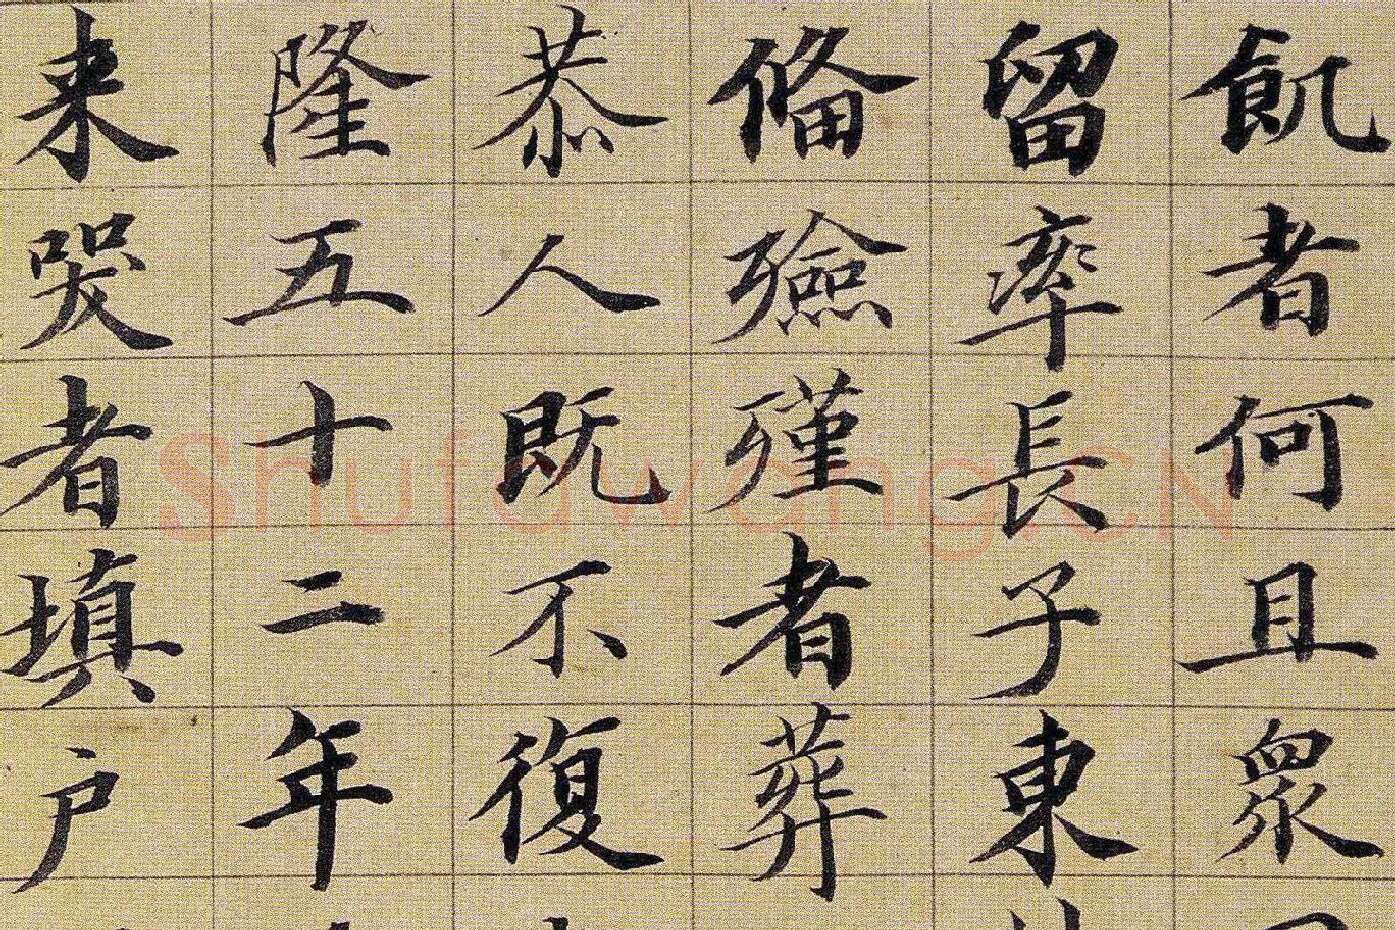 飢者何且眾
留率長子東
俻殮殣者葬
恭人既不復
隆五十二年
来哭者填户
Shufawang.CN